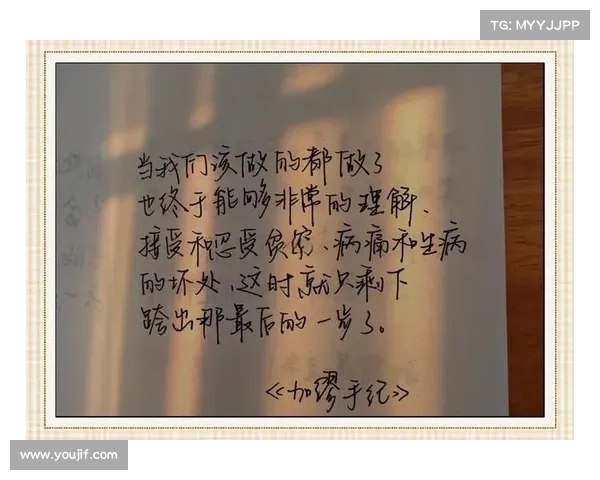 TG: MYYJJPP
当我们该做的都做了
也终于能够非常的理解、
接受和忍受贫穷、病痛和生病
的坏处,这时就只剩下
跨出那最后的一步了。
《加缪手纪》
www.youjif.com